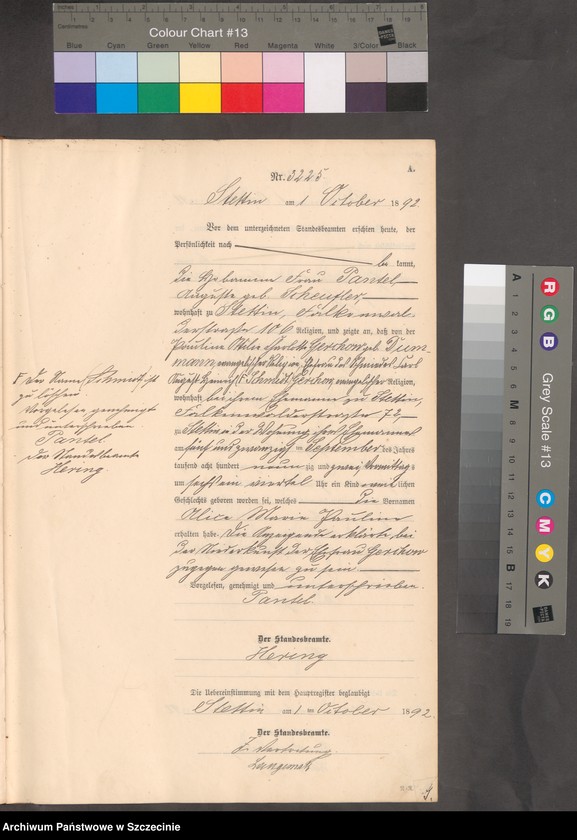 Inches
Centimetres
Colour Chart #13
Blue Cyan Green Yellow Red Magenta White 3/Color Black
A.
Nr. 3225.
Stettin am 1 October 1892
Vor dem unterzeichneten Standesbeamten erschien heute, der
Persönlichkeit nach
be kannt,
die Hebamme Frau Pantel,
Auguste geb. Scheufler,
wohnhaft zu Stettin, Falkenwal-
derstraße 106 Religion, und zeigte an, daß von der
Pauline Ottilie Charlotte Gerchow geb. Dum-
mann, evangelischer Religion, Ehefrau des Carl
August Schmidt Gerchow, evangelischer Religion,
wohnhaft bei ihrem Ehemann zu Stettin,
Falkenwalderstraße 72,
zu Stettin in der Wohnung ihres Ehemannes
am fünf und zwanzigsten September des Jahres
tausend acht hundert neun zig und zwei Vormittags
um sechs ein viertel Uhr ein Kind weib lichen
Geschlechts geboren worden sei, welches die Vornamen
Alice Marie Pauline
erhalten habe. Die Anzeigende erklärte bei
der Niederkunft der Ehefrau Gerchow
zugegen gewesen zu sein
Vorgelesen, genehmigt und unterschrieben.
Pantel.
Der Standesbeamte.
Hering
F Der Name Schmidt ist
zu löschen
Vorgelesen genehmigt
und unterschrieben
Pantel
Der Standesbeamte
Hering.
Die Uebereinstimmung mit dem Hauptregister beglaubigt
Stettin am 1 ten October 1892.
Der Standesbeamte.
In Vertretung.
Grey Scale #13
A 1 2 3 4 5 6 M 8 9 10 11 12 13 14 15 B 17 18 19
R
G
B
C
M
Y
K
Archiwum Państwowe w Szczecinie